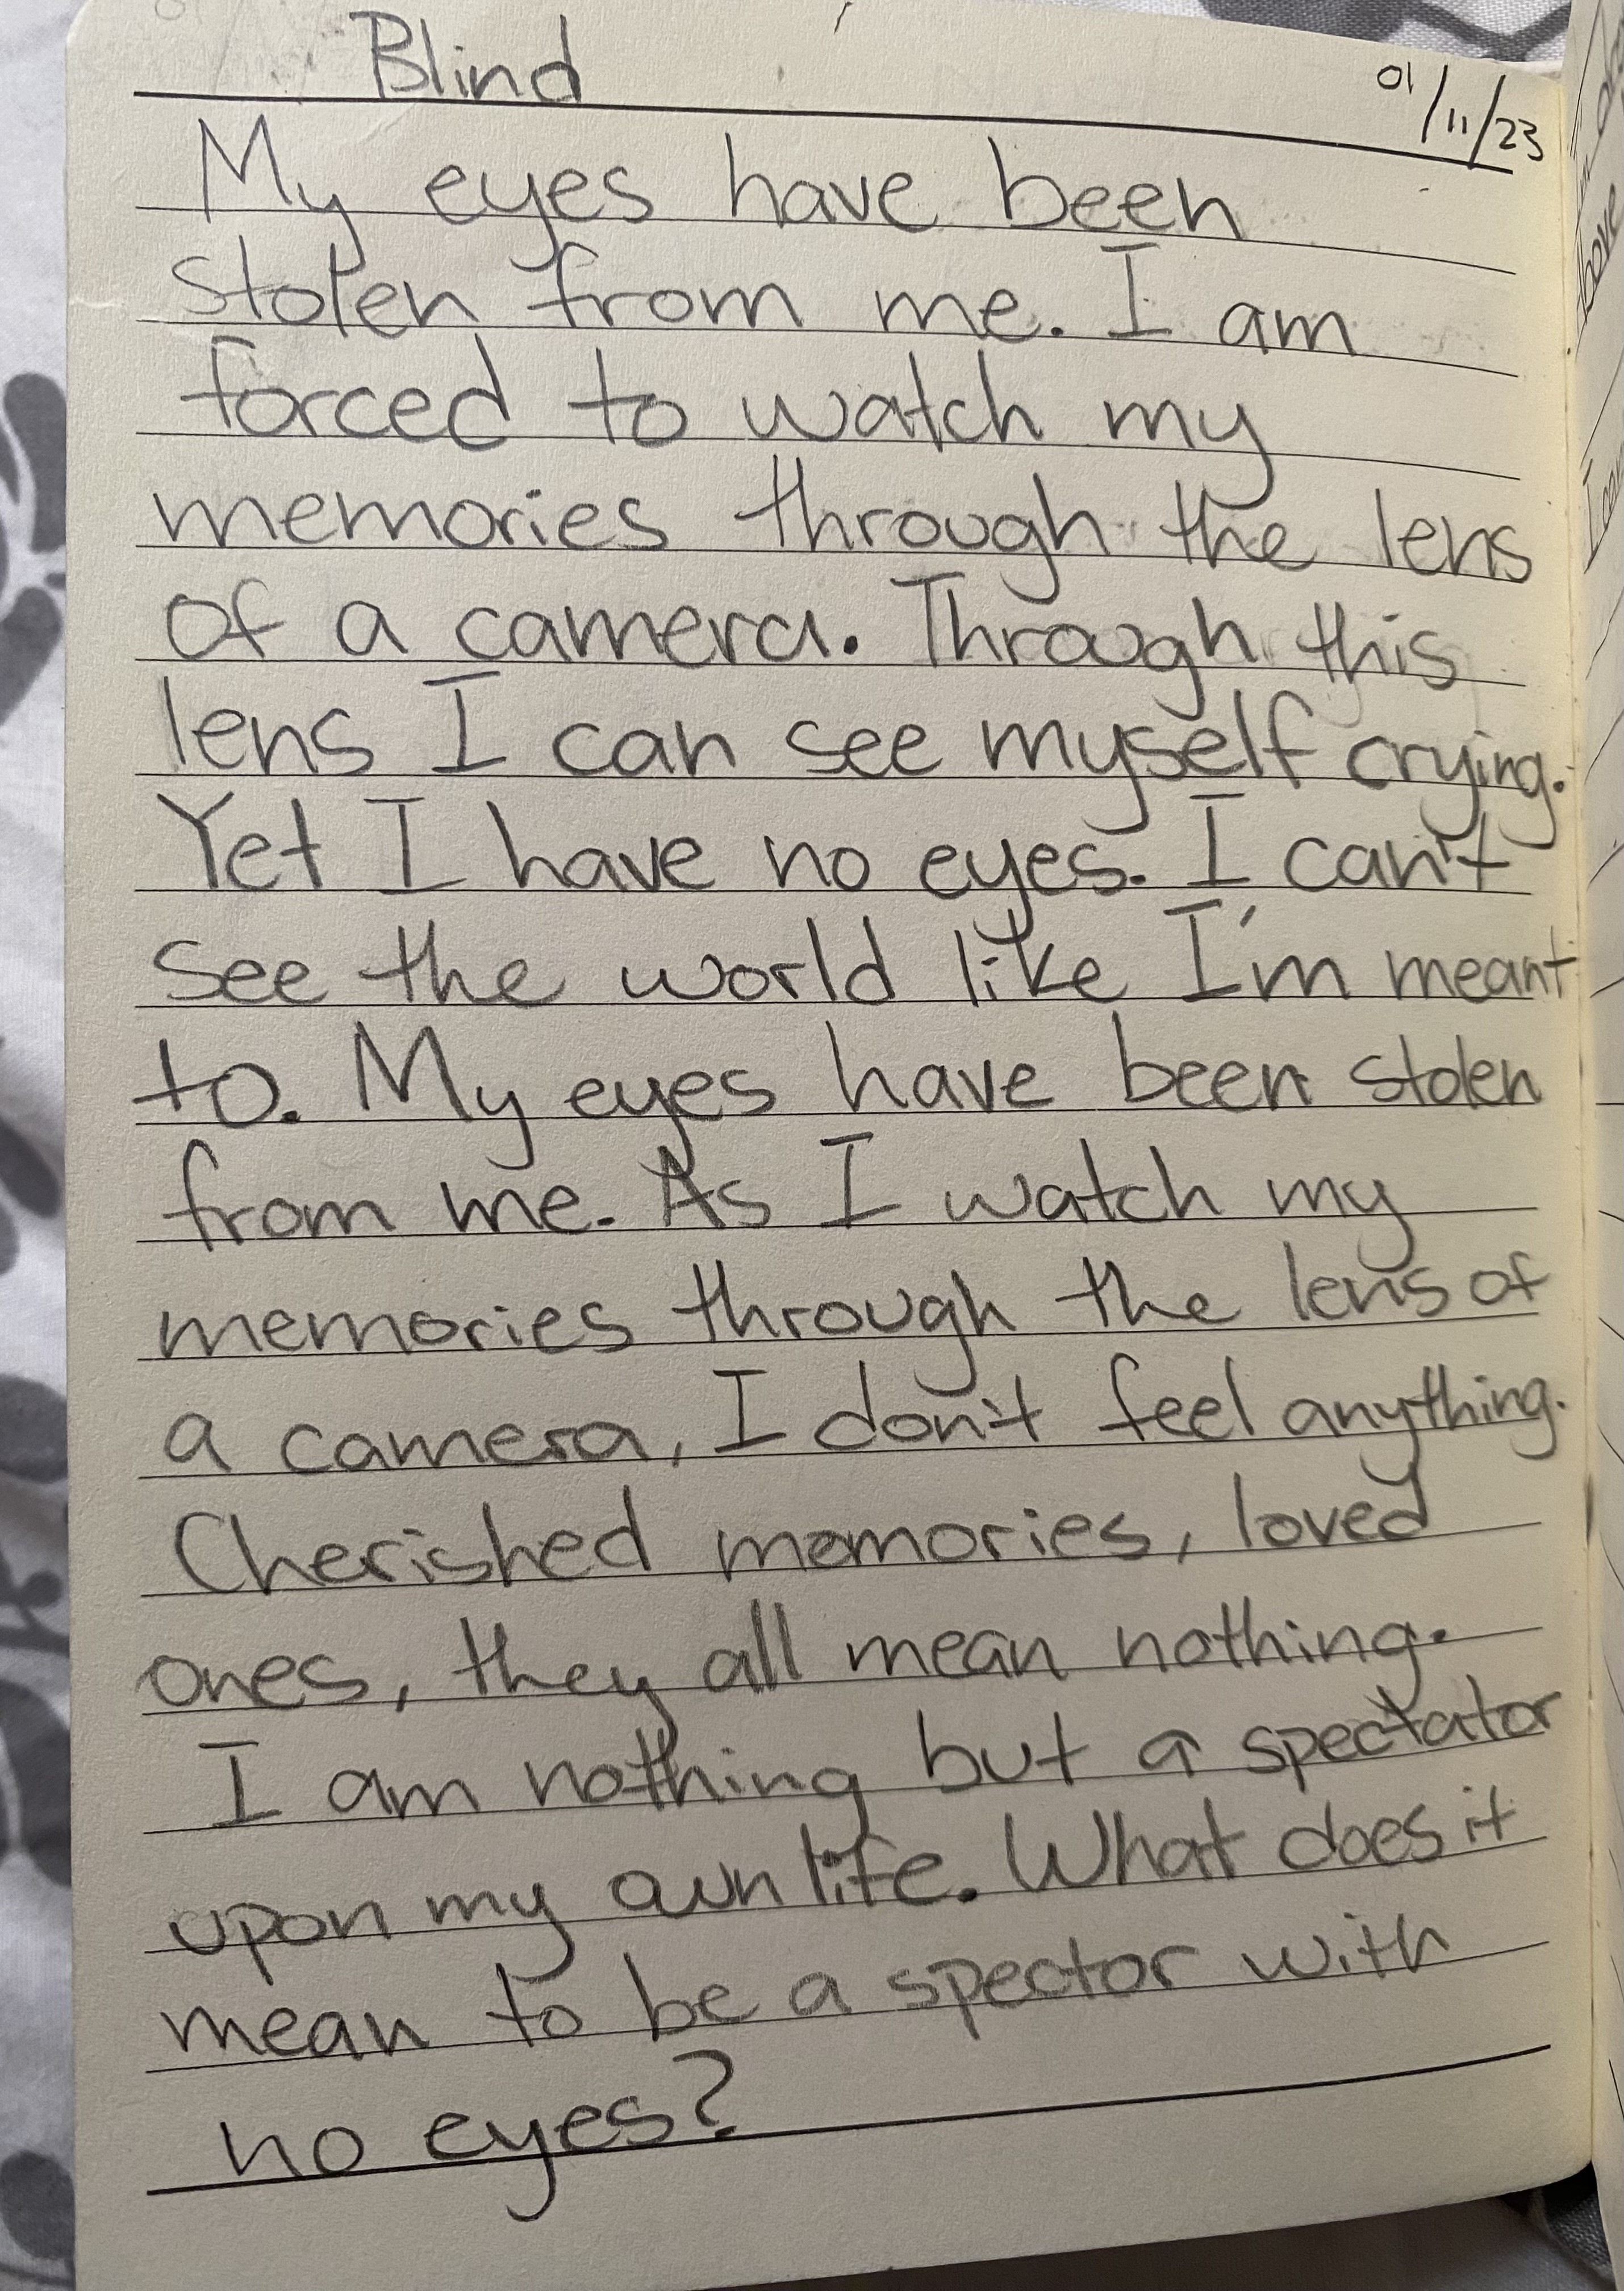 Blind
01/11/23
My eyes have been
stolen from me. I am
forced to watch my
memories through the lens
of a camera. Through this
lens I can see myself crying.
Yet I have no eyes. I can't
see the world like I'm meant
to. My eyes have been stolen
from me. As I watch my
memories through the lens of
a camera, I don't feel anything.
Cherished memories, loved
ones, they all mean nothing.
I am nothing but a spectator
upon my own life. What does it
mean to be a spector with
no eyes?